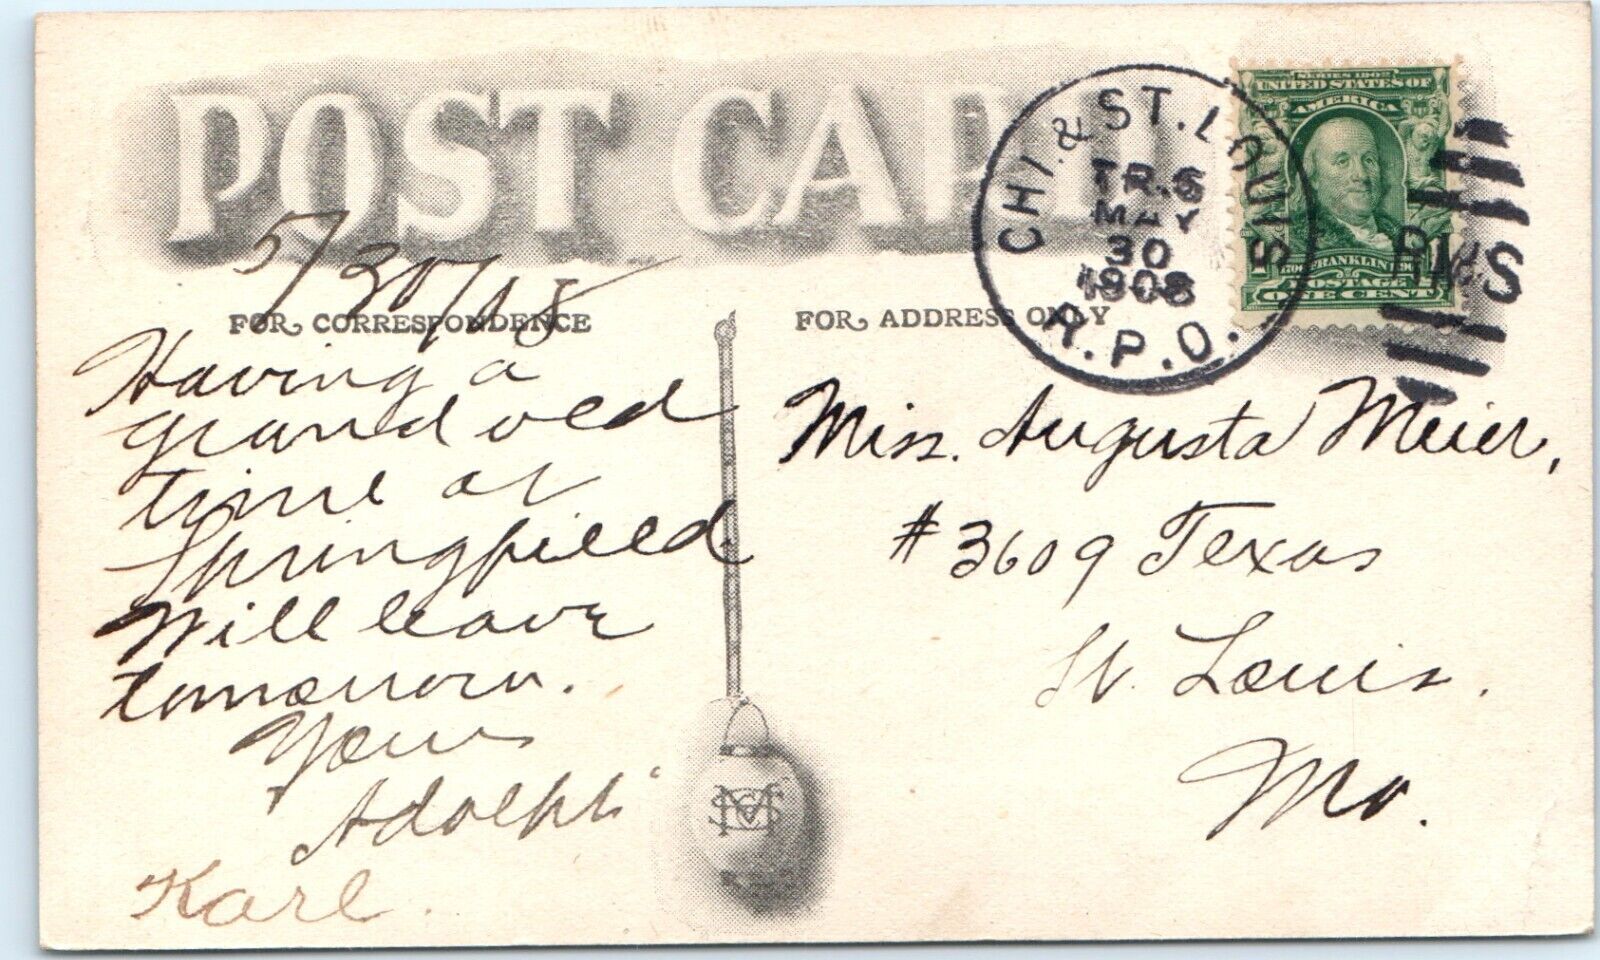 POST CARD
CHI. & ST. LOUIS
TR. 6
MAY
30
1908
R.P.O.
RMS
SERIES 1902
UNITED STATES OF
AMERICA
FRANKLIN
POSTAGE
ONE CENT
5/30/08
FOR CORRESPONDENCE
FOR ADDRESS ONLY
Having a
grand old
time at
Springfield
Will leave
tomorrow.
Yours
Adolph
Karl.
Miss. Augusta Meier,
#3609 Texas
St. Louis.
Mo.